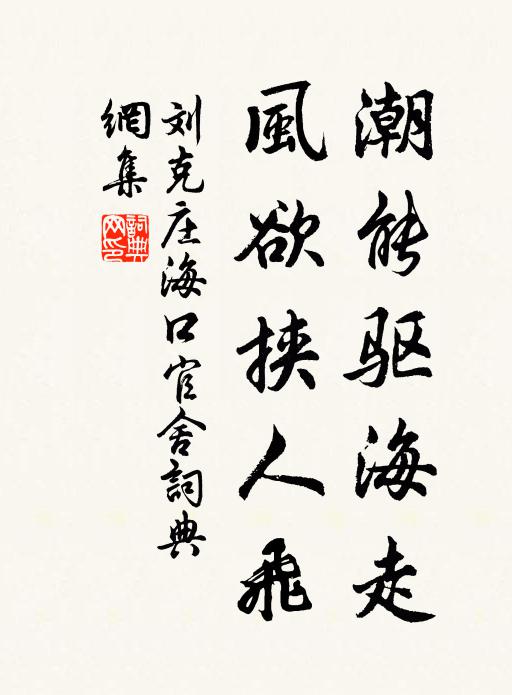 潮能驱海走
風欲挟人飛
刘克庄海口官舍詞典
網集
詞典網印